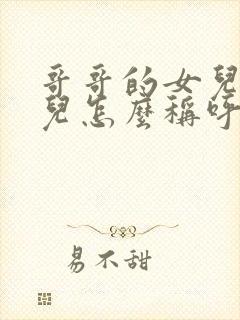 哥哥的女兒
兒怎麼稱呼
易不甜